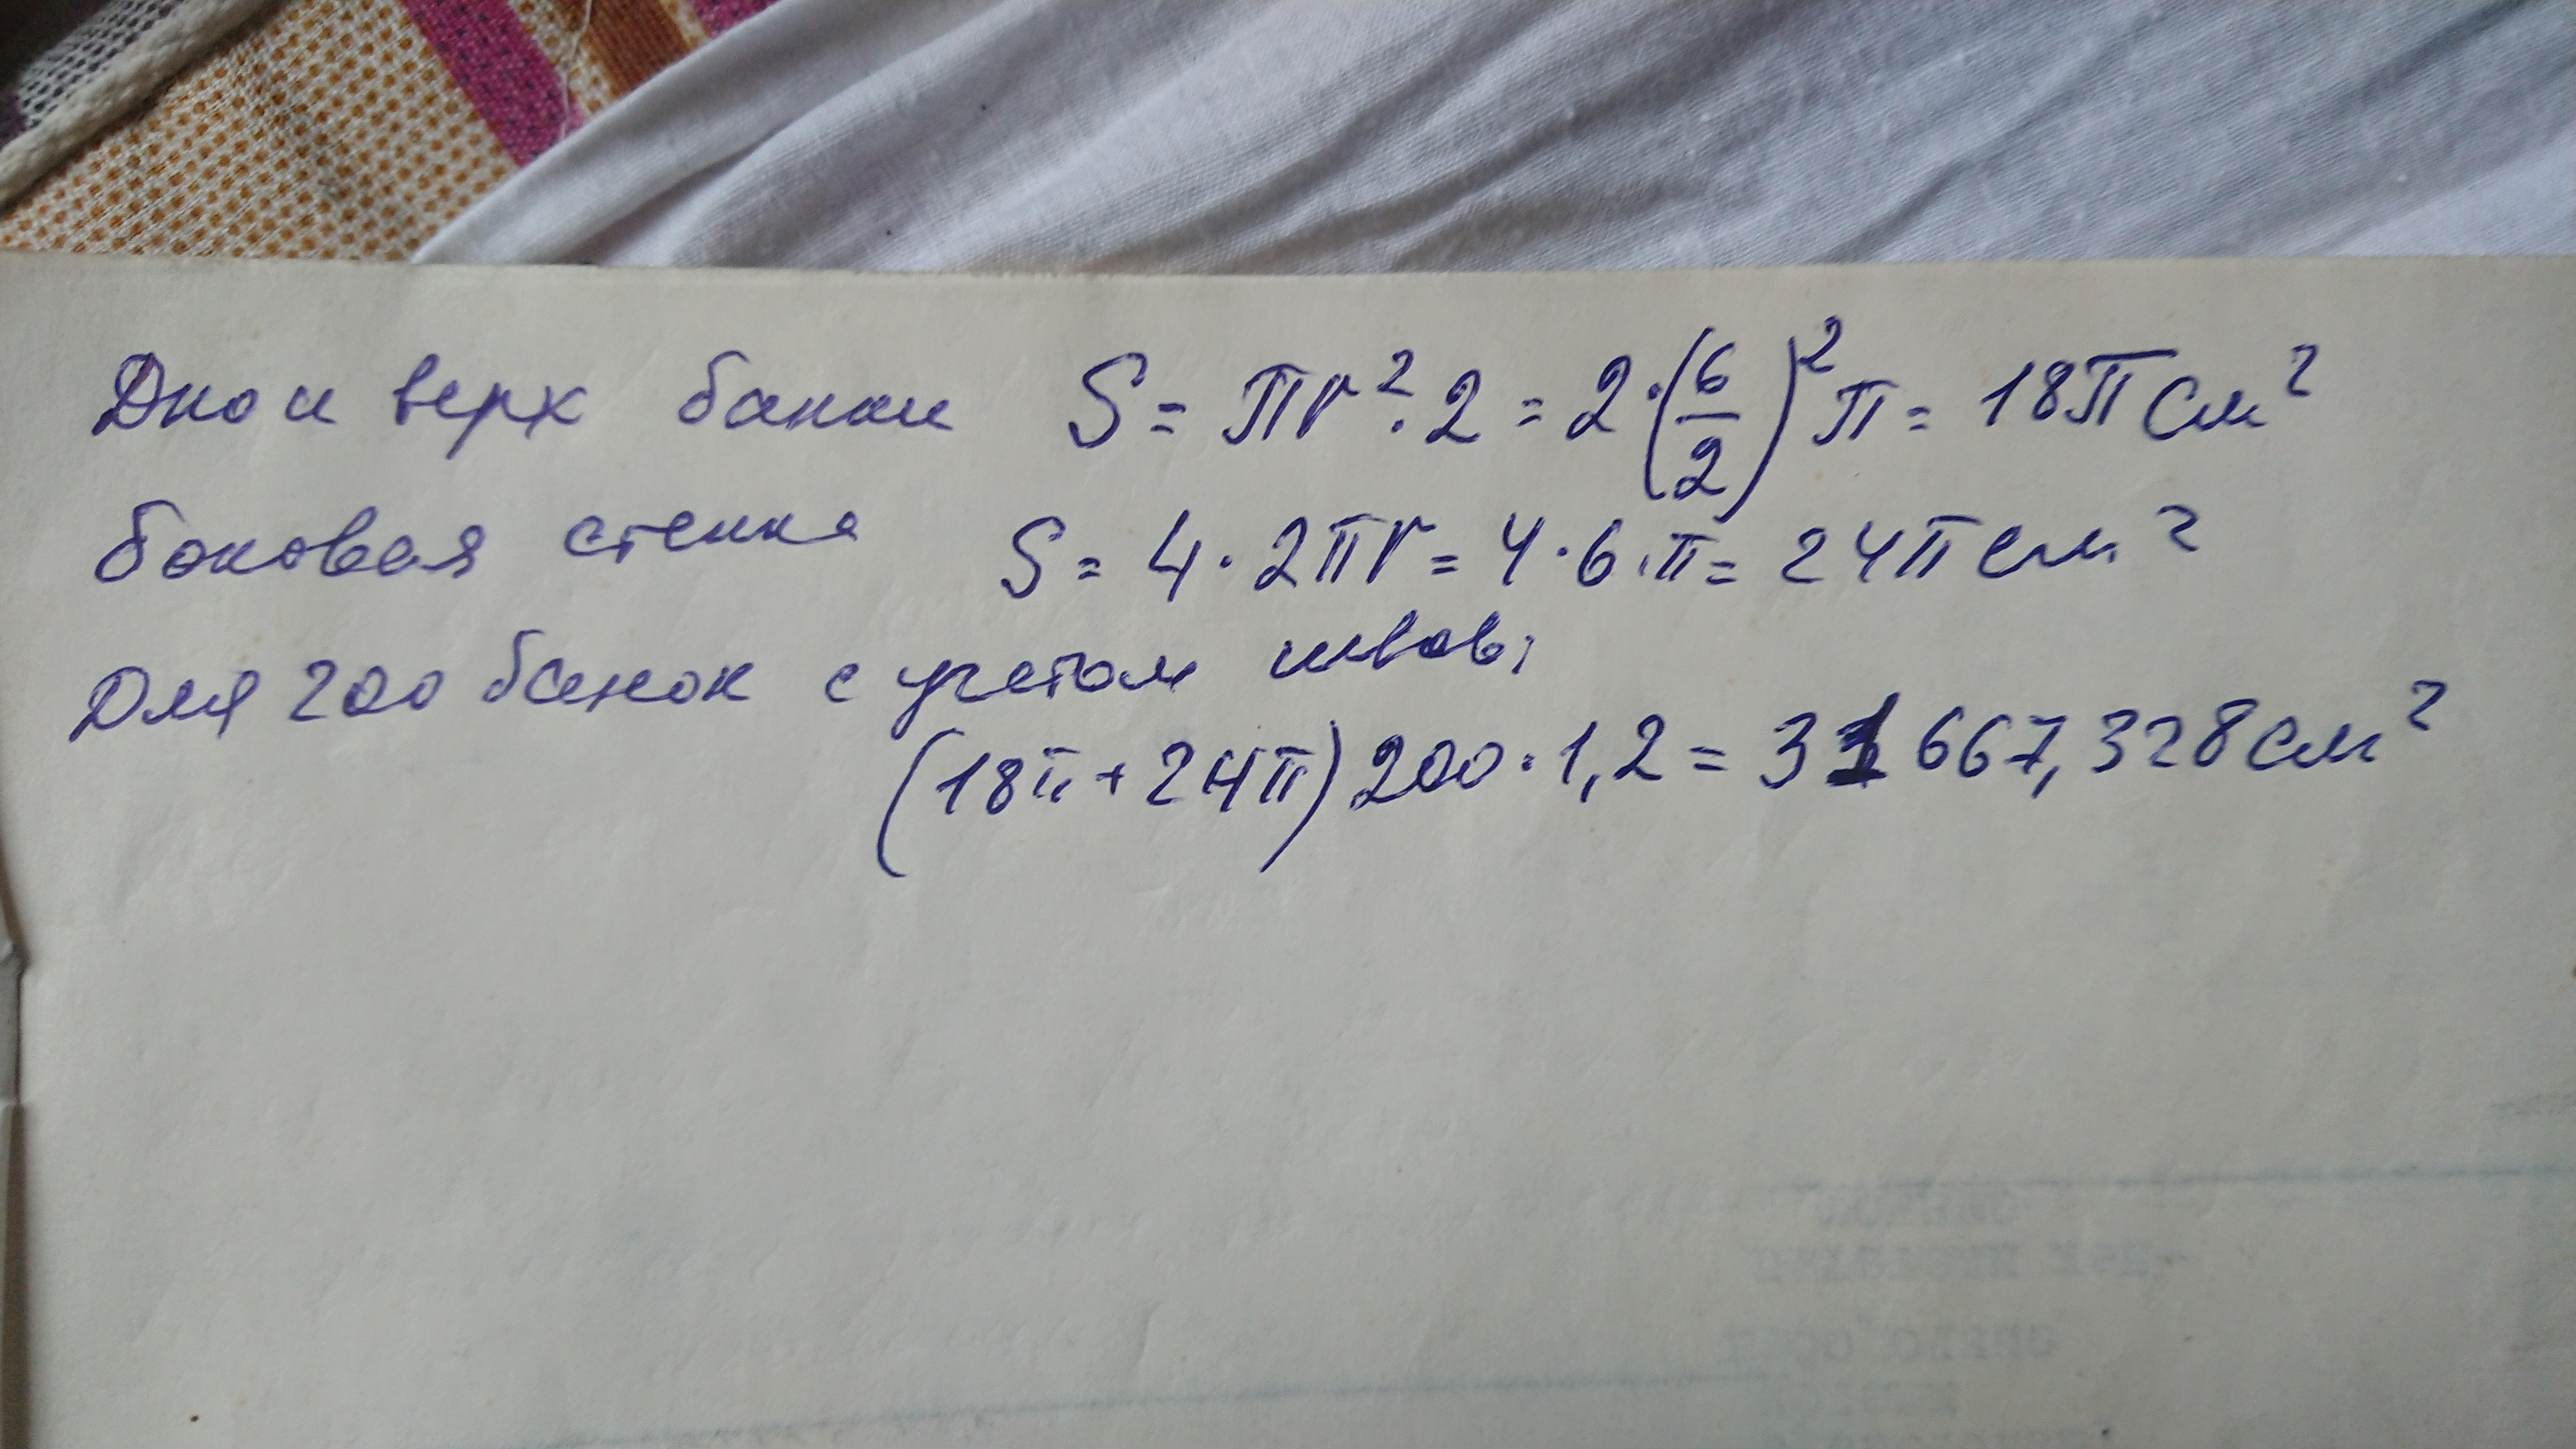 Дно и верх банки S = πr²·2 = 2·(6/2)²π = 18π см²
боковая стенка S = 4·2πr = 4·6·π = 24π см²
Для 200 банок с учетом швов:
(18π+24π)200·1,2 = 31 667,328 см²